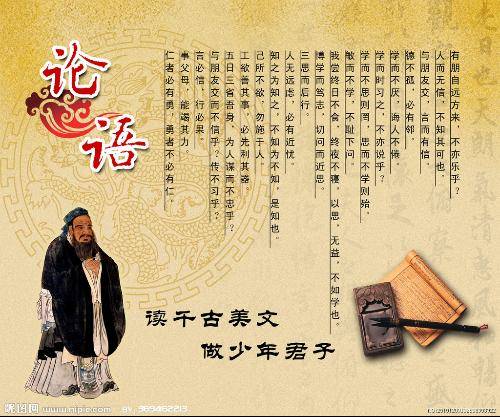 论语
有朋自远方来，不亦乐乎？
人而无信，不知其可也。
与朋友交，言而有信
德不孤，必有邻。
学而不厌，诲人不倦。
学而时习之，不亦说乎？
学而不思则罔，思而不学则殆。
敏而不学，不耻下问。
我尝终日不食，终夜不寝。以思。无益，不如学也。
博学而笃志，切问而近思
三思而后行。
人无远虑，必有近忧。
知之为知之，不知为不知。是知也。
己所不欲，勿施于人。
工欲善其事，必先利其器。
五日三省吾身，为人谋而不忠乎？
与朋友交而不信乎？传不习乎？
言必信，行必果。
事父母，能竭其力。
仁者必有勇，勇者不必有仁。
读千古美文
做少年君子
昵图网 www.nipic.com BY: 969462213